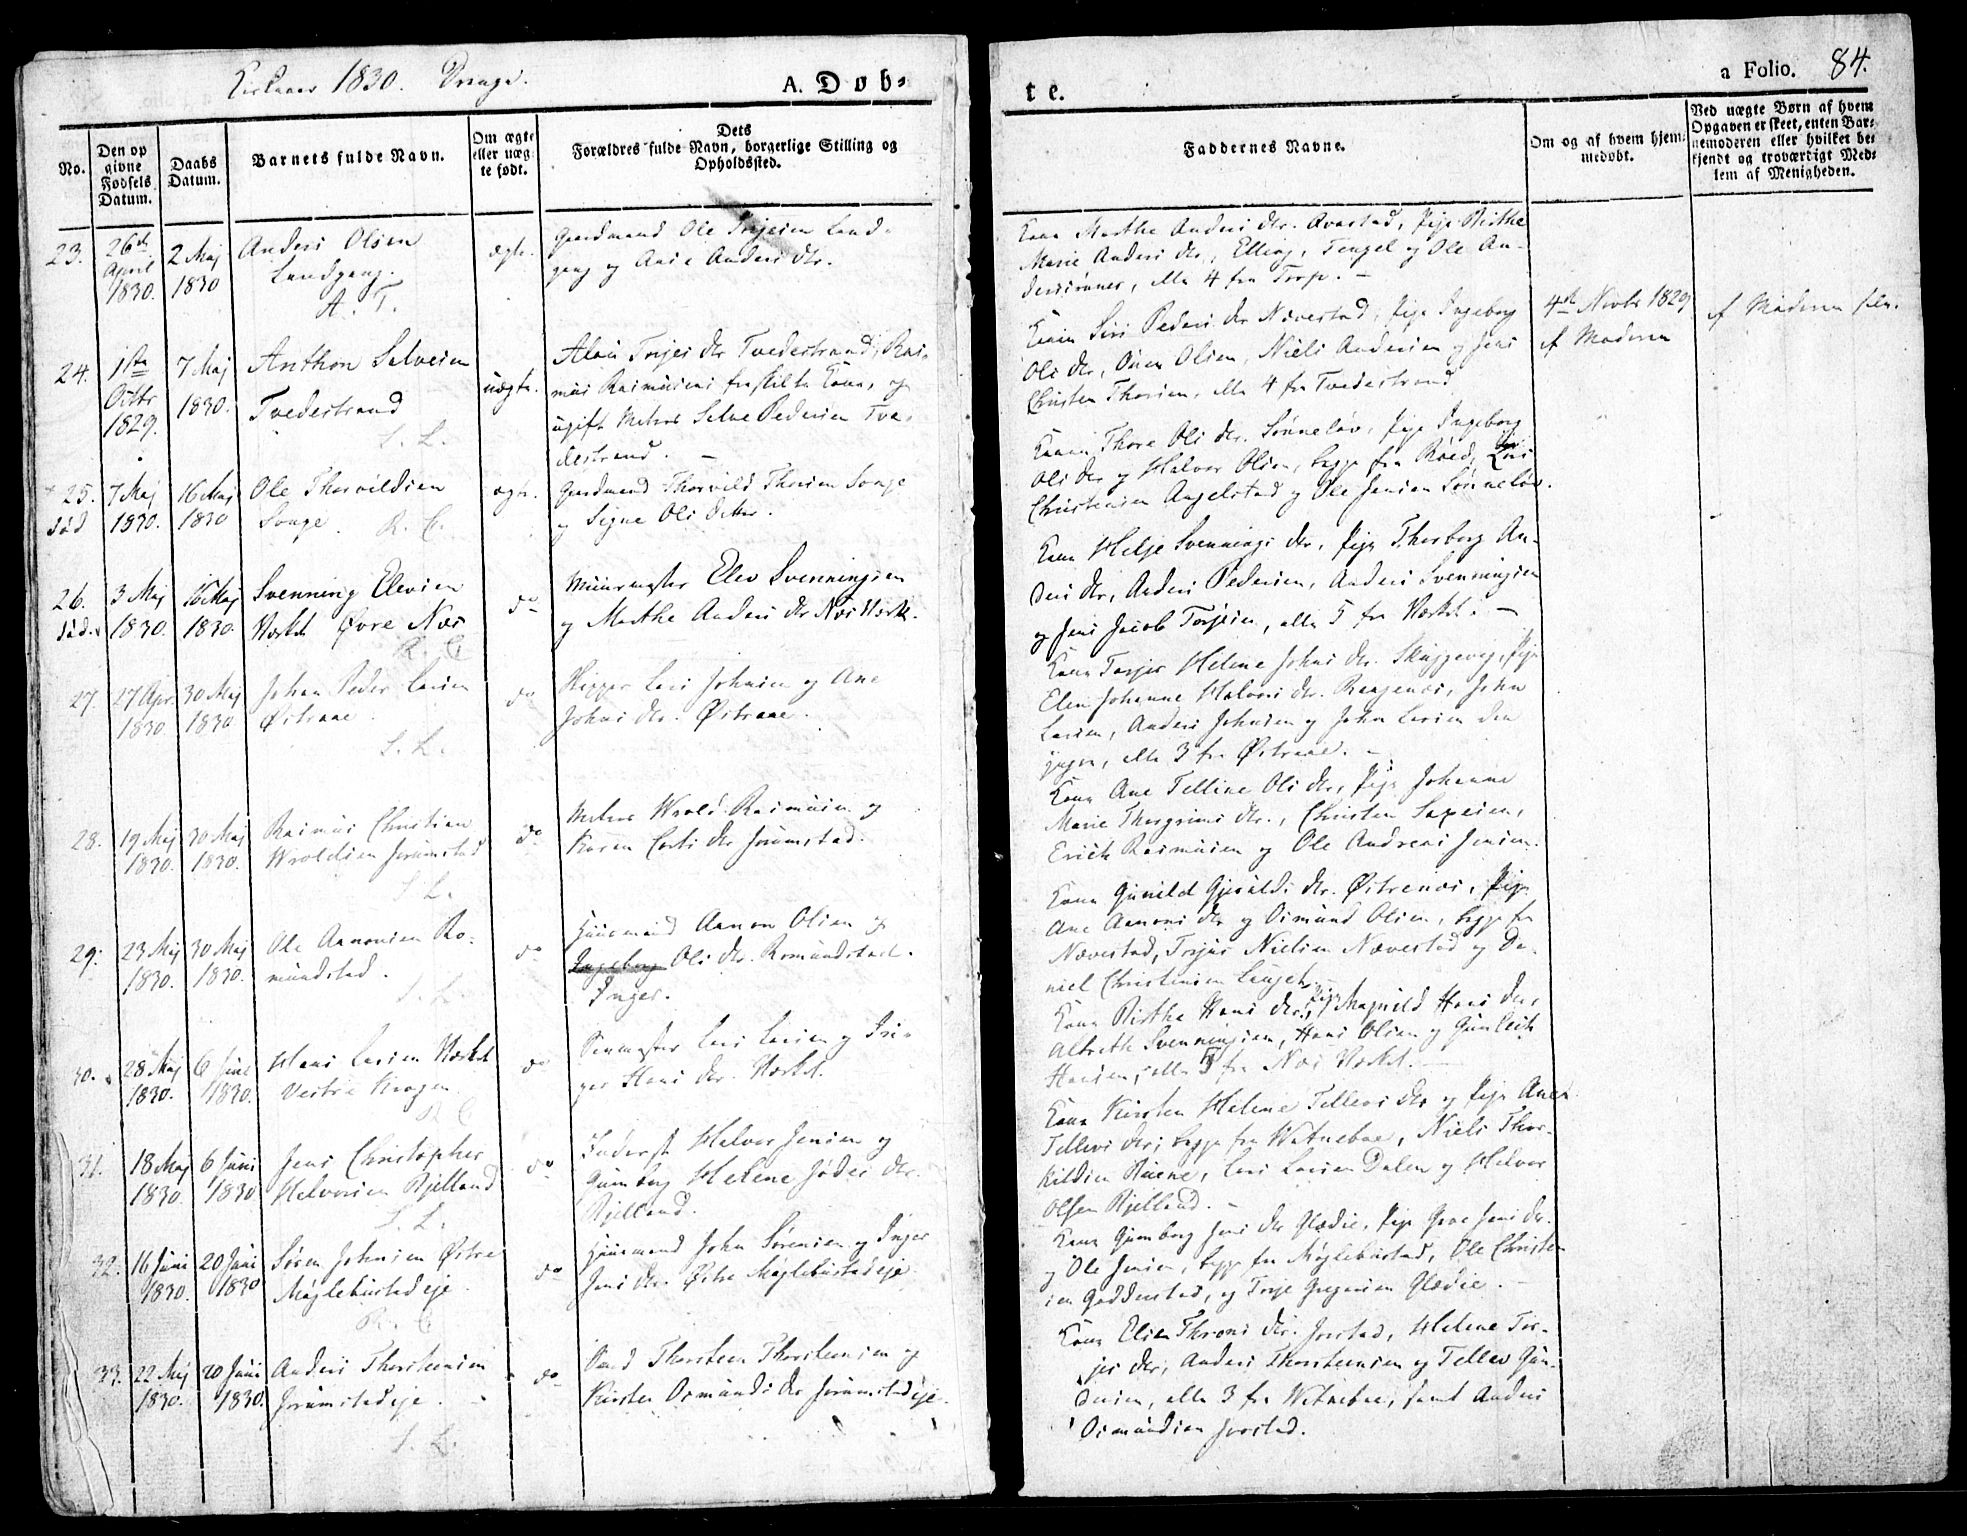 Kirkeaar 1830. Drenge.
A. Døb=
te.
a Folio. 84.
No.
Den op
givne
Fødsels
Datum.
Daabs
Datum.
Barnets fulde Navn.
Om ægte
eller uæg
te født.
Dets
Forældres fulde Navn, borgerlige Stilling og
Opholdssted.
Faddernes Navne.
Om og af hvem hjem=
medøbt.
Ved uægte Børn af hvem
Opgaven er skeet, enten Bar=
nemoderen eller hvilket be=
kjendt og troværdigt Med=
lem af Menigheden.
23.
26de
April
1830.
2 Maj
1830
Anders Olsen
Landgang.
A. T.
ægte.
Gaardmand Ole Land-
gang og Anders dtr.
Kone Marthe Anders dtr. Qvastad, Pige Birthe
Marie Anders dtr, Elling, Tengel og Ole An-
derssønner, alle 4 fra Torp. -
24.
1ste
Octbr
1829.
7 Maj
1830.
Anthon Selvesen
Tvedestrand
S. L.
uægte.
Torjes dtr Tvedestrand, Ras-
mus Rasmusens fraskilte Kone, og
ugift Matros Selve Pedersen Tve-
destrand. -
Konen Siri Peders dtr Nævestad, Pige Ingeborg
Ols dtr, Olsen, Niels Andersen og Jens
Christen Thorsen, alle 4 fra Tvedestrand
4de Novbr 1829
af Moderen
af Moderen selv.
25.
død
7 Maj
1830.
16 Maj
1830
Ole Thorvildsen
Songe. R. C.
ægte.
Gaardmand Thorvild Thorsen Songe
og Signe Ols datter.
Konen Thore Ols dtr. Sønneløv, Pige Ingeborg
Ols dtr og Halvor Olsen, begge fra Røed, Lars
Christensen Angelstad og Ole Jensen Sønneløv.
26.
død.
3 Maj
1830.
16 Maj
1830.
Svenning Elevsen
Værket Øvre Næs
R. C
do
Muurmester Elev Svenningsen
og Marthe Anders dtr Næs Værk.
Kone Helje Svennings dtr, Pige Thorborg An-
ders dtr, Anders Pedersen, Anders Svenningsen
og Jens Jacob Torjesen, alle 5 fra Værket. -
27.
27 Apr.
1830.
30 Maj
1830
Johan Peder Larsen
Østraae.
S. L.
do
Lars Johnsen og Ane
Johns dtr. Østraae.
Kone Torjer Helene Johns dtr. Skuggevig, Pige
Elen Johanne Halvors dtr. Ranges, John
Larsen, Anders Johnsen og John Larsen den
yngre, alle 3 fra Østraae. -
28.
19 Maj
1830.
30 Maj
1830.
Rasmus Christian
Wroldsen Jorumstad
S. L.
do
Matros Wrold Rasmusen og
Karen dtr Jorumstad.
Kone Ane Telline Ols dtr, Pige Johanne
Marie Thorgrims dtr., Christen Saxesen,
Erich Rasmusen og Ole Andreas Jensen.
29.
23 Maj
1830.
30 Maj
1830.
Ole Aanonsen Ro-
mundstad.
S. L.
do
Huusmand Aanon Olsen og
Ingeborg Ols dtr. Romundstad.
Inger.
Kone Gunild Gjerulds dtr. Østrenæs, Pige
Ane Aanons dtr og Osmund Olsen, begge fra
Nævestad, Torjus Nielsen Nævestad og Da-
niel Christensen
30.
28 Maj
1830.
6 Juni
1830.
Hans Larsen Værket
Vestre Kragen
R C
do
Lars Larsen og In-
ger Hans dtr. Værket.
Kone Birthe Hans dtr, Pige Magnild Hans dtr,
Albreth Svenningsen, Hans Olsen og Gunleik
Hansen, alle 5 fra Næs Værket. -
31.
18 Maj
1830.
6 Juni
1830
Jens Christopher
Halvorsen Bjelland
S. L.
do
Inderst Halvor Jensen og
Gunborg Helene dtr.
Bjelland.
Kone Kirsten Helene Tellevs dtr og Pige Ane
Tellevs dtr, begge fra Watnebue, Niels Thor-
kildsen, Lars Larsen Dalen og Halvor
Olsen Bjelland. -
32.
16 Juni
1830.
20 Juni
1830
Søren Johnsen Østre
Møglebustadeje.
R. C
do
Huusmand John Sørensen og Inger
Jens dtr. Østre Møglebustadeje.
Kone Gunborg Jens dtr Glædie, Pige Jens dtr.
og Ole Jensen, begge fra Møglebustad, Ole Christen
sen Goddenstad, og Torje Gregersen Glædie. -
33.
22 Maj
1830.
20 Juni
1830.
Anders Thorsteensen
Jorumstadeje.
S. L.
do
Thorsteen Thorsteensen og
Kirsten Osmunds dtr Jorumstadeje.
Kone Elsen Throns dtr. Jorstad, Helene Tor-
jes dtr, Anders Thorsteensen og Tellev Gun-
dersen, alle 3 fra Watnebue, samt Anders
Osmundsen Jorstad.